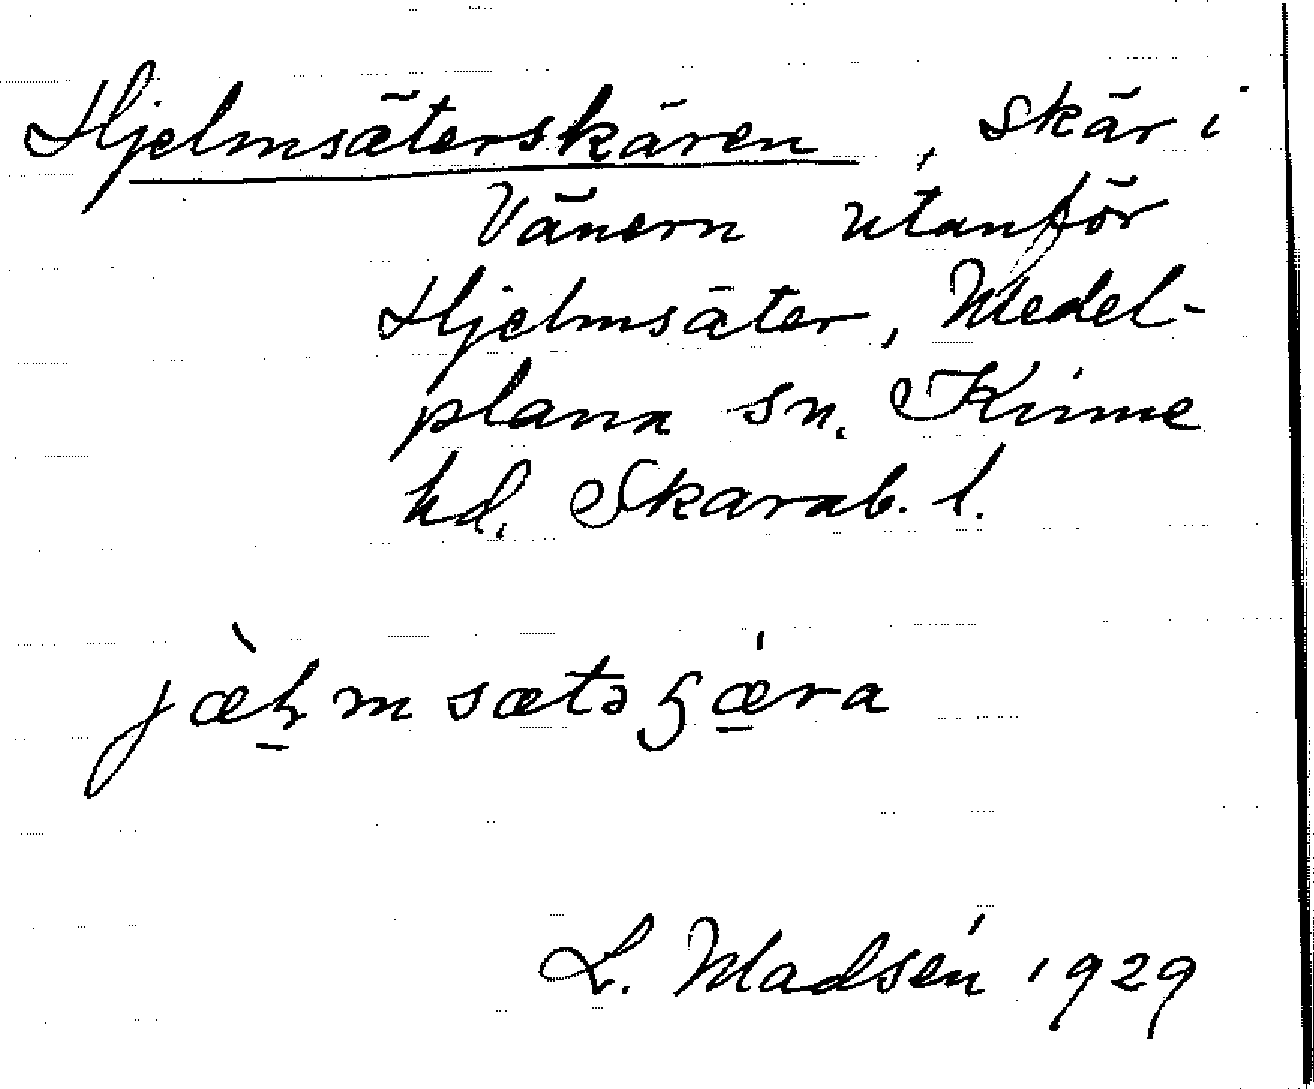 Hjelmsäterskären, skär i
Vänern utanför
Hjelmsäter, Medel-
plana sn. Kinne
hd. Skarab. l.
L. Madsén 1929